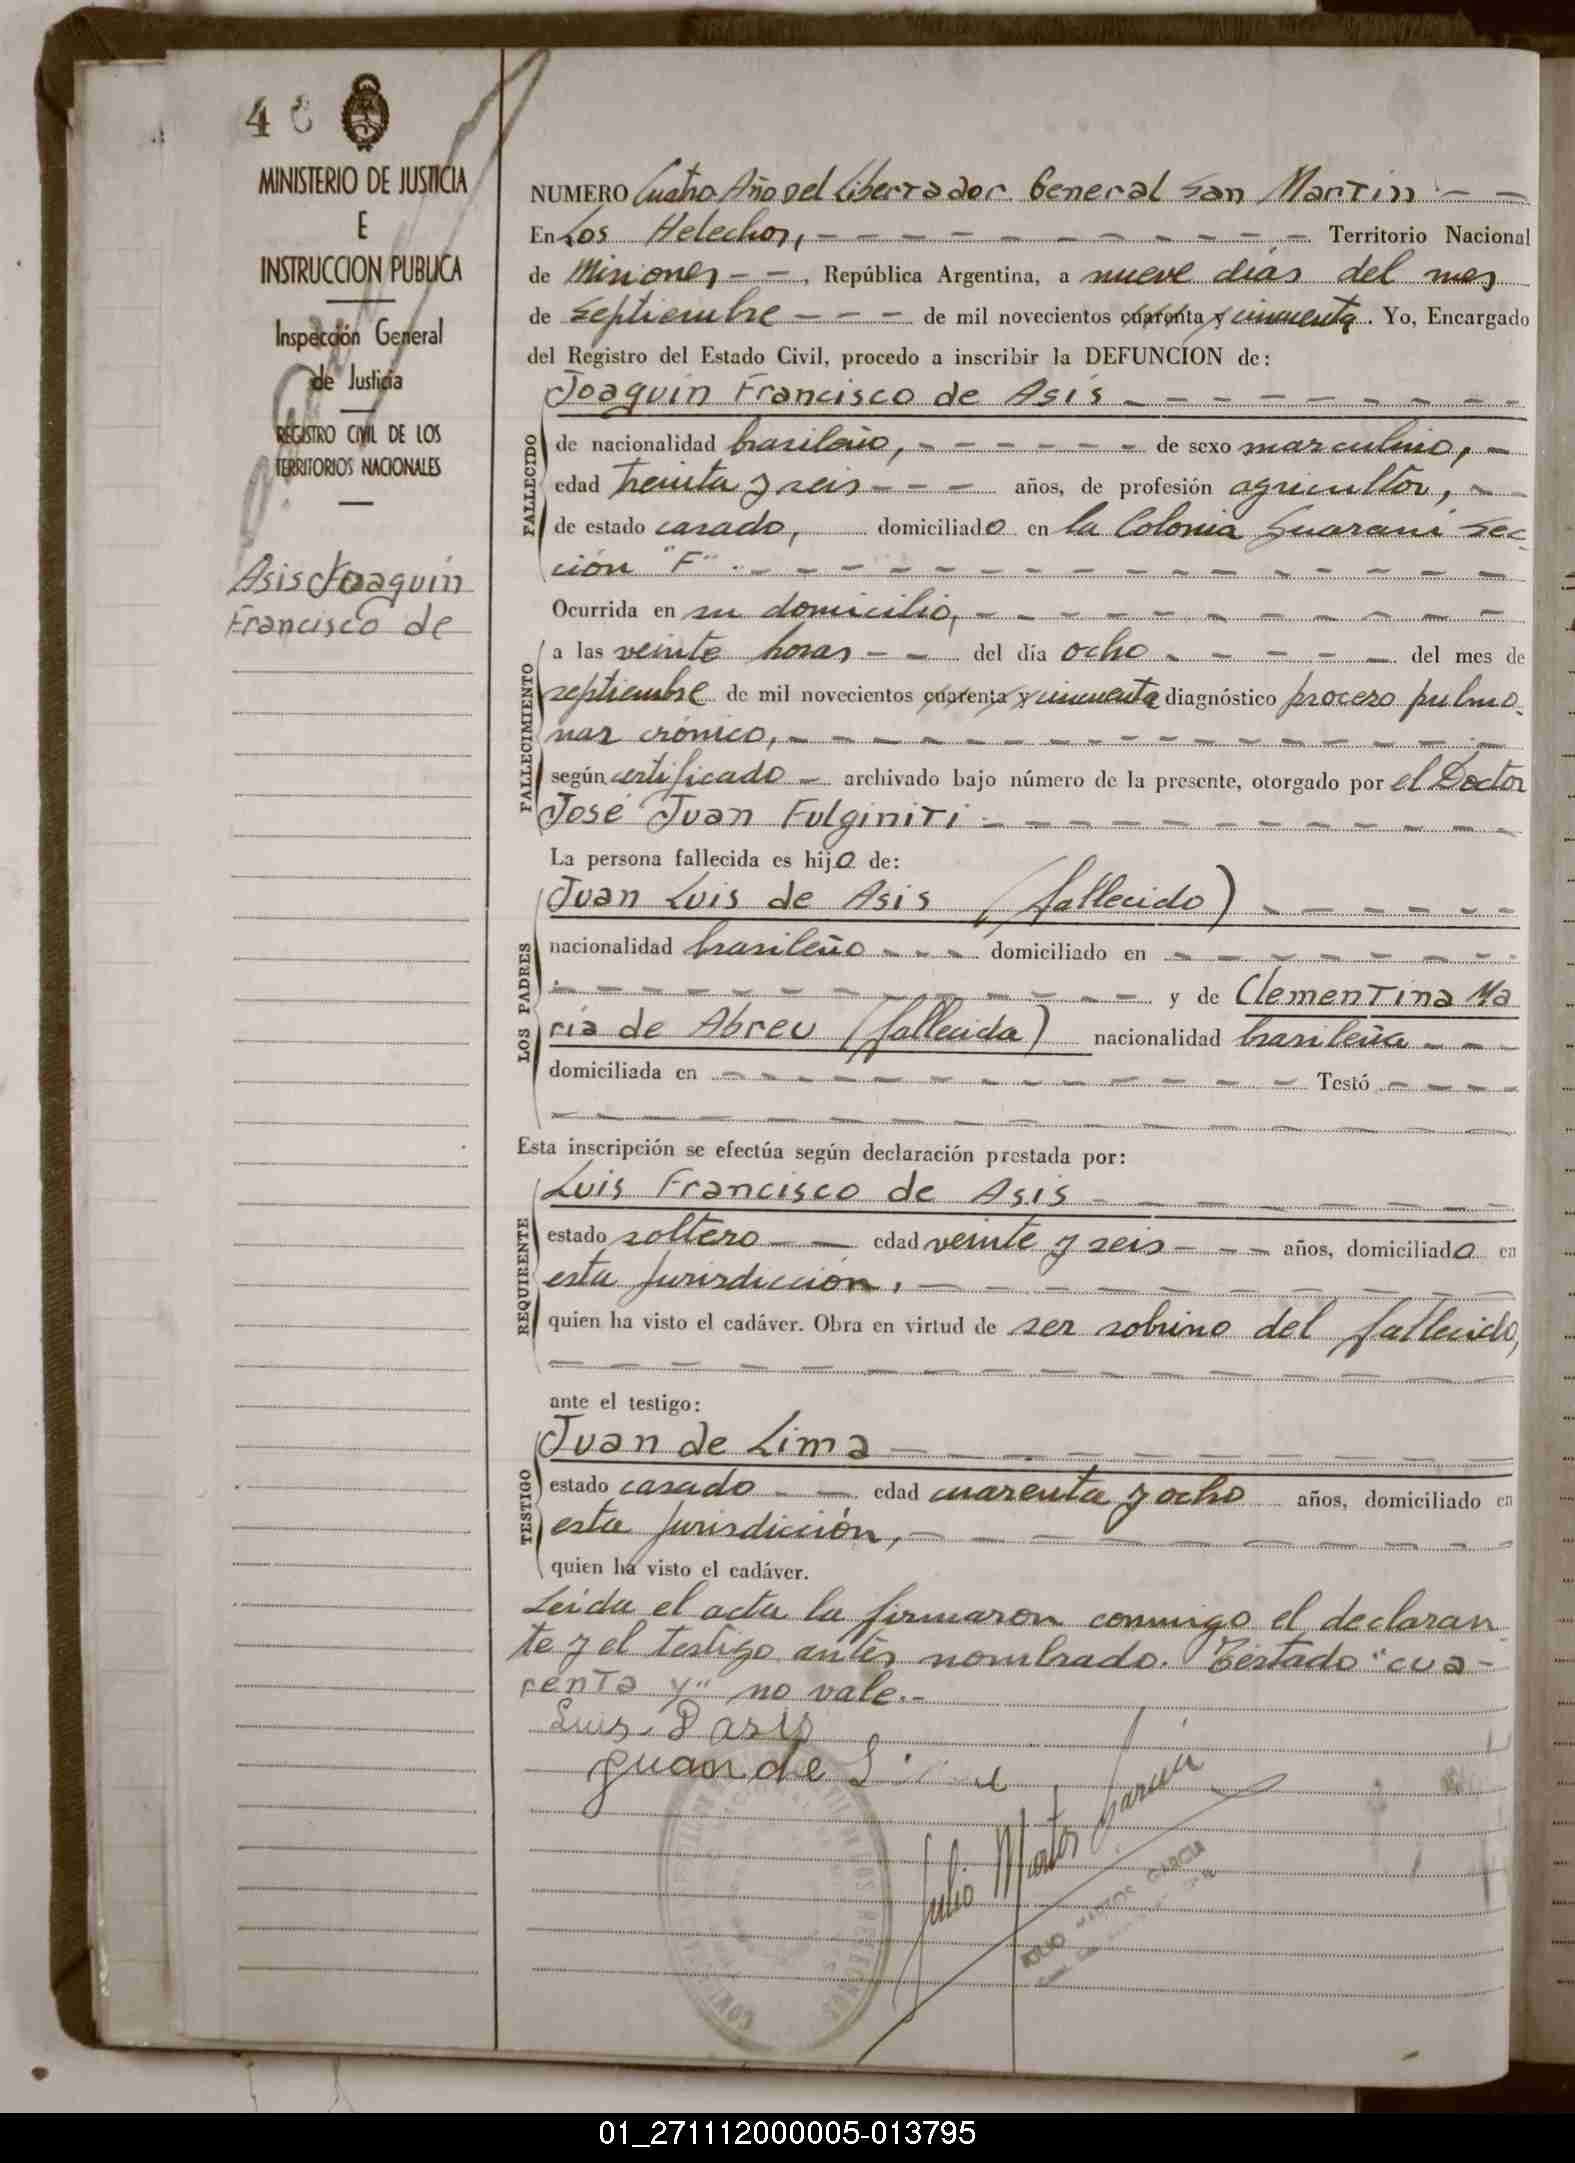 4
MINISTERIO DE JUSTICIA
E
INSTRUCCION PUBLICA
Inspección General
de Justicia
REGISTRO CIVIL DE LOS
TERRITORIOS NACIONALES
Asis Joaquin
Francisco de
NUMERO Cuatro Año Del Libertador General San Martin - -
En Los Helechos, - - - - - - - - - - - - Territorio Nacional
de Misiones - - , República Argentina, a nueve días del mes
de septiembre - - - de mil novecientos cuarenta y cincuenta. Yo, Encargado
del Registro del Estado Civil, procedo a inscribir la DEFUNCION de:
Joaquin Francisco de Asís - - - - - - - - -
FALLECIDO
de nacionalidad brasileño, - - - - - - de sexo masculino, -
edad treinta y seis - - - años, de profesión agricultor, - -
de estado casado, domiciliado en la Colonia Guaraní Sec-
ción "F". - - - - - - - - - - - - - - -
Ocurrida en su domicilio, - - - - - - - - - - -
FALLECIMIENTO
a las veinte horas - - del día ocho - - - - - - del mes de
septiembre de mil novecientos cuarenta y cincuenta diagnóstico proceso pulmo-
nar crónico, - - - - - - - - - - - - - - -
según certificado - archivado bajo número de la presente, otorgado por el Doctor
José Juan Fulginiti - - - - - - - - - - - - -
La persona fallecida es hijo de:
Juan Luis de Asis (fallecido) - - - - - - -
LOS PADRES
nacionalidad brasileño - - - domiciliado en - - - - - - - -
- - - - - - - - - - - - - - y de Clementina Ma
ría de Abreu (fallecida) nacionalidad brasileña - - -
domiciliada en - - - - - - - - - - - - - - Testó - - - -
- - - - - - - - - - - - - - - - -
Esta inscripción se efectúa según declaración prestada por:
Luis Francisco de Asis - - - - - - - -
REQUIRENTE
estado soltero - - edad veinte y seis - - - años, domiciliado en
esta jurisdicción, - - - - - - - - - -
quien ha visto el cadáver. Obra en virtud de ser sobrino del fallecido,
- - - - - - - - - - - - - - - - -
ante el testigo:
Juan de Lima - - - - - - - - - -
TESTIGO
estado casado - - edad cuarenta y ocho años, domiciliado en
esta jurisdicción, - - - - - - - - - -
quien ha visto el cadáver.
Leída el acta la firmaron conmigo el declaran
te y el testigo antes nombrado. Testado "cua-
renta y" no vale.-
Luis D asis
Juan de
Julio Martos Garcia
JULIO MARTOS GARCIA
01_271112000005-013795